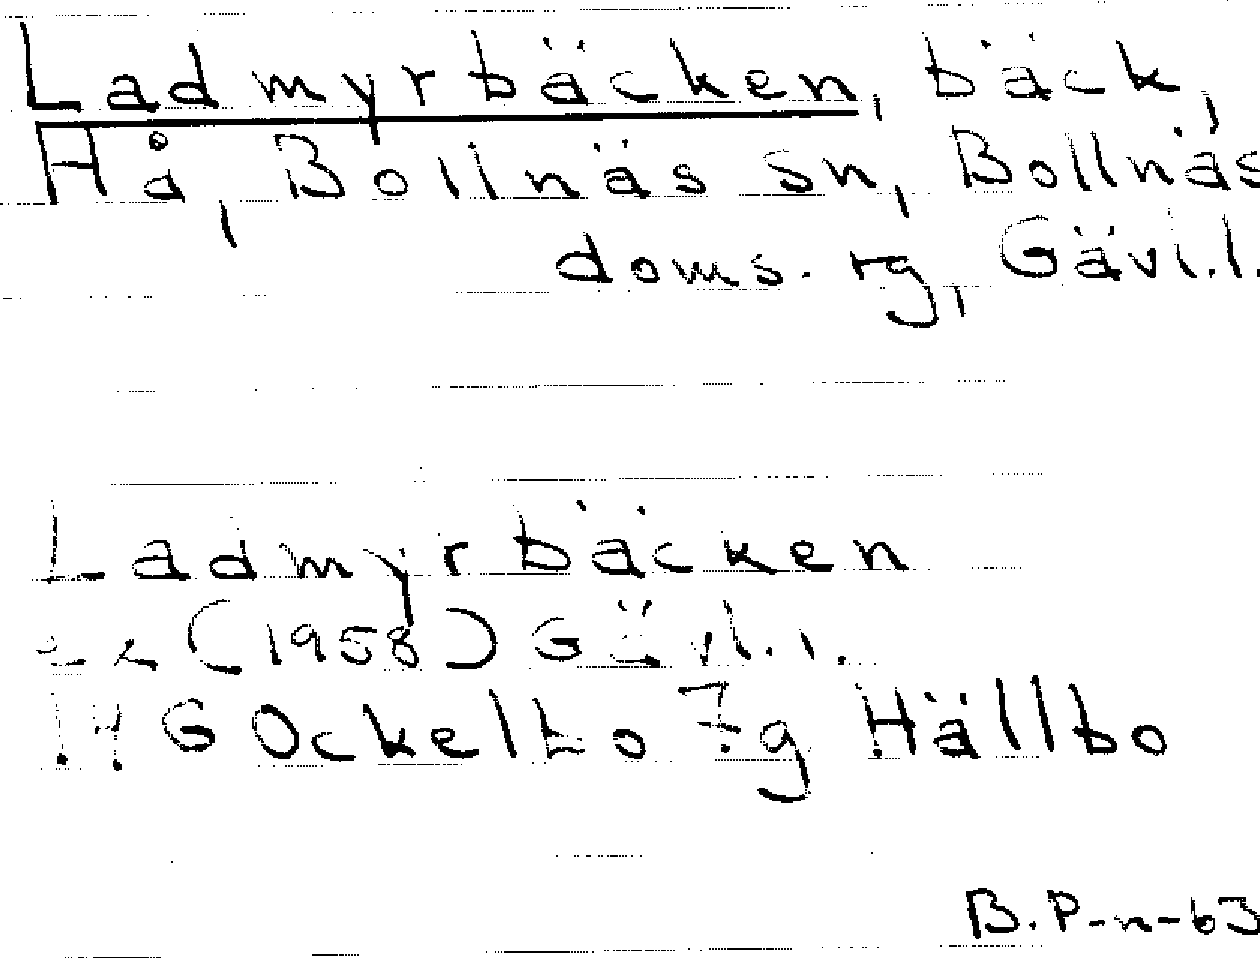 Ladmyrbäcken, bäck,
Hå, Bollnäs sn, Bollnäs
doms. rg, Gävl.l.
Ladmyrbäcken
(1958) Gävl. l.
14 G Ockelbo 7g Hällbo
B.P-n-63